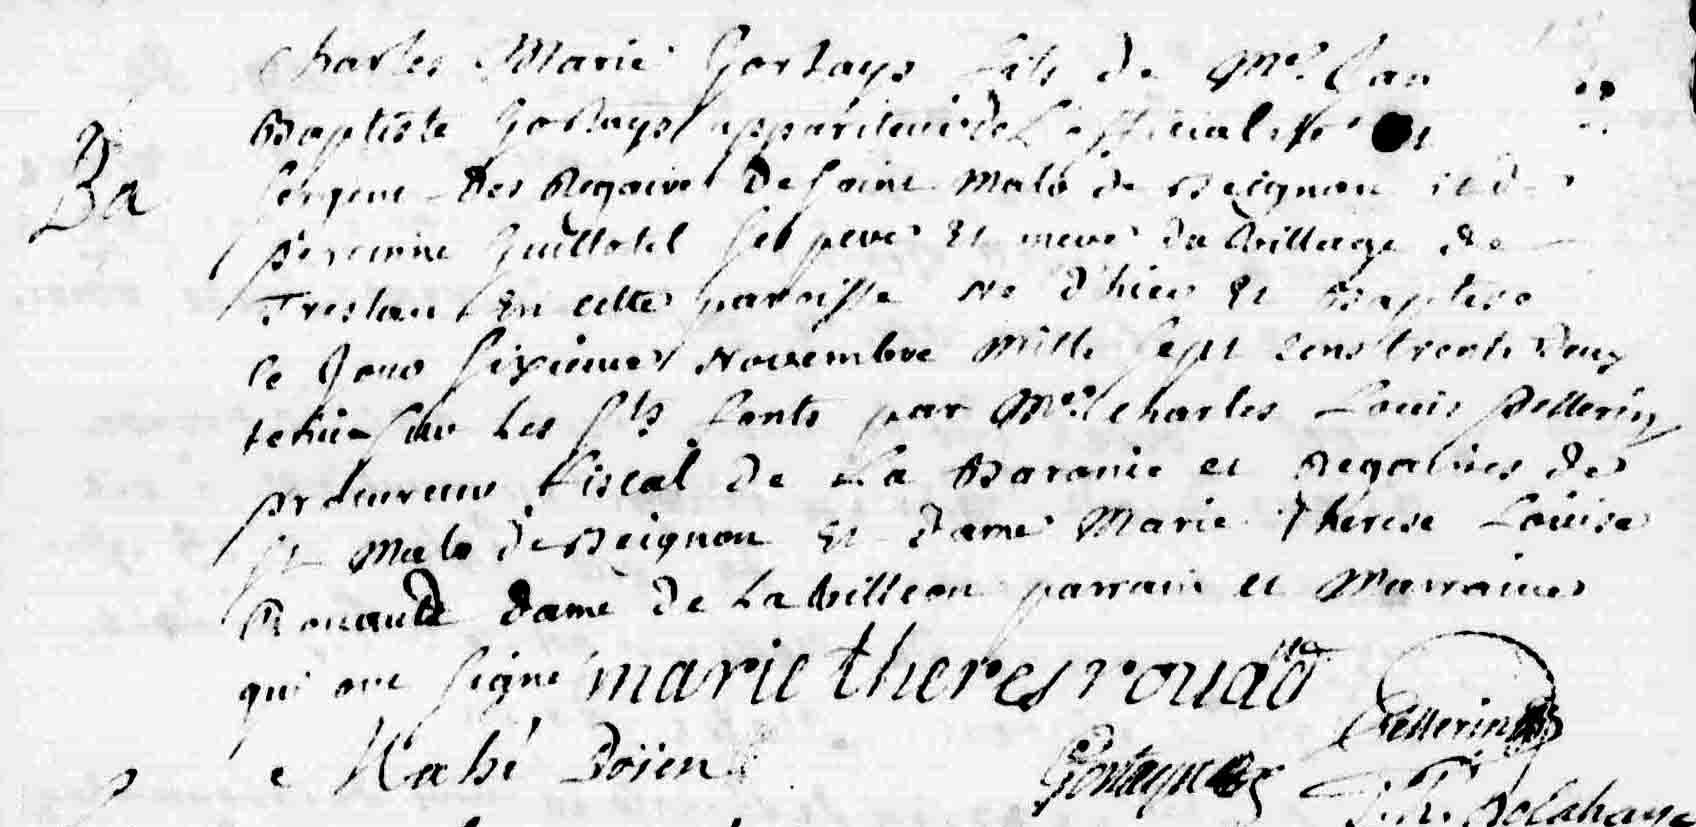 Charles Marie Gortays fils de Mre Jan
Baptiste Gortays appariteur de L'officialité et
Ba
sergent des Regaires de saint Malo de Beignon et de
perrinne Guillotel ses pere et mere du village de
Trestan en cette paroisse né d'hier et Baptisé
ce Jour sixieme Novembre Mille sept cens trente deux
tenu sur les sts fonts par Mre Charles Louis Pellerin
procureur fiscal de La Baronie et Regaires de
st Malo de Beignon et dame Marie Therese Louise
Rouault dame de La villeon parrain et Marraine
qui ont signé marie theres rouaud
Pellerin
Mahé Doïen
Gortays